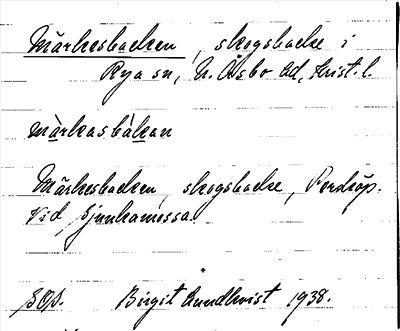 Märkesbacken, skogsbacke i
Rya sn, N. Åsbo hd, Krist. l.
märkasbakan
Märkesbacken, skogsbacke,
Vid
Birgit Lundkvist 1938.